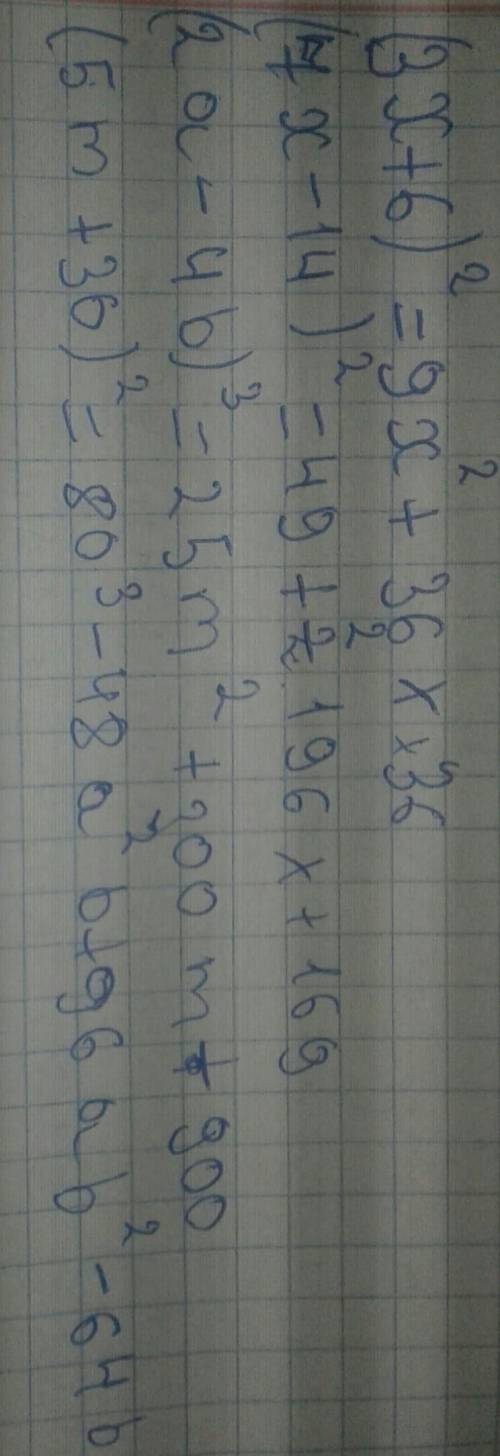 (3x+6)² = 9x² + 36x+36
(7x-14)² = 49+x² 196x+169
(2a-4b)³ = 25m² +300m+900
(5m+36)² = 8a³-48a²b+96ab²-64b